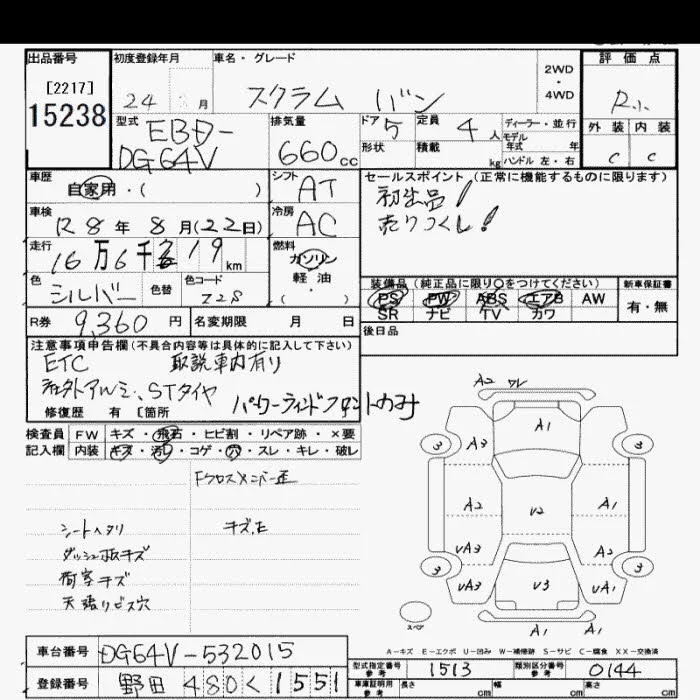 出品番号 初度登録年月 車名・グレード 評価点
[2217]
15238
24 月 スクラム バン 2WD ・ 4WD R
型式 EBD- DG64V 排気量 660cc ドア 5 定員 4人 ディーラー・並行
モデル年式 年
形状 積載 kg ハンドル 左・右
外装 内装
C C
車歴 自家用・( ) シフト AT セールスポイント (正常に機能するものに限ります)
初出品!
売りつくし!
車検 R8年8月(22日) 冷房 AC
走行 16万6千 19km 燃料 ガソリン
軽油
・( )・
色 シルバー 色替 色コード Z2S
装備品(純正品に限り〇をつけてください) 新車保証書
PS PW ABS エアB AW 有・無
SR ナビ TV カワ
R券 9,360円 名変期限 月 日 後日品
注意事項申告欄(不具合内容等は具体的に記入して下さい)
ETC 取説車内有り
社外アルミ、STタイヤ
パワーウィンドフロントのみ
修復歴 有 [箇所
検査員 FW キズ・飛石・ヒビ割・リペア跡・×要
記入欄 内装 キズ・汚れ・コゲ・穴・スレ・キレ・破レ
Fクロスメンバー歪
シートヘタリ キズ、E
ダッシュ板キズ
荷室キズ
天張りビス穴
A2 ワレ
A1
3 A3 3
A2 V2 A1
VA3 A2
3 3
VA3 V3 VA1
スペア A1 A1
A-キズ E-エクボ U-凹み W-補修跡 S-サビ C-腐食 XX-交換済
車台番号 DG64V-532015
型式指定番号 参考 1513 類別区分番号 参考 0144
登録番号 野田 480く1551
車庫証明用 参考 長さ cm 幅 cm 高さ cm